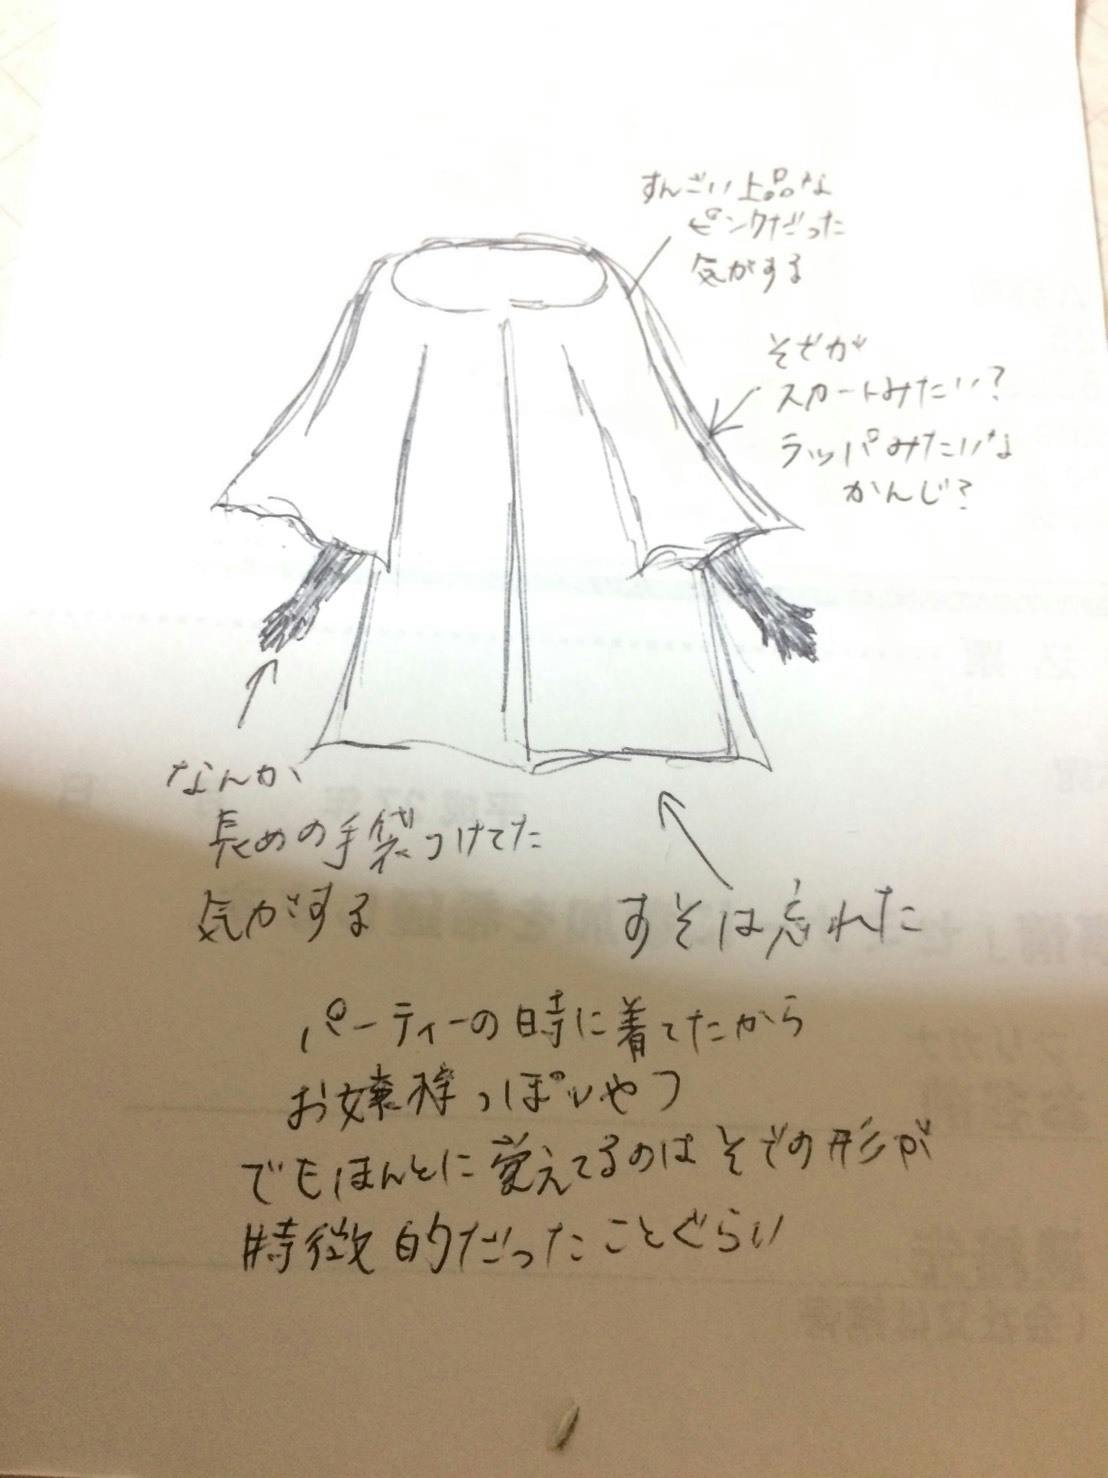 すんごい上品な
ピンクだった
気がする
そでが
スカートみたい?
ラッパみたいな
かんじ?
なんか
長めの手袋つけてた
気がする
すそは忘れた
パーティーの時に着てたから
お嬢様っぽいやつ
でもほんとに覚えてるのはそでの形が
特徴的だったことぐらい